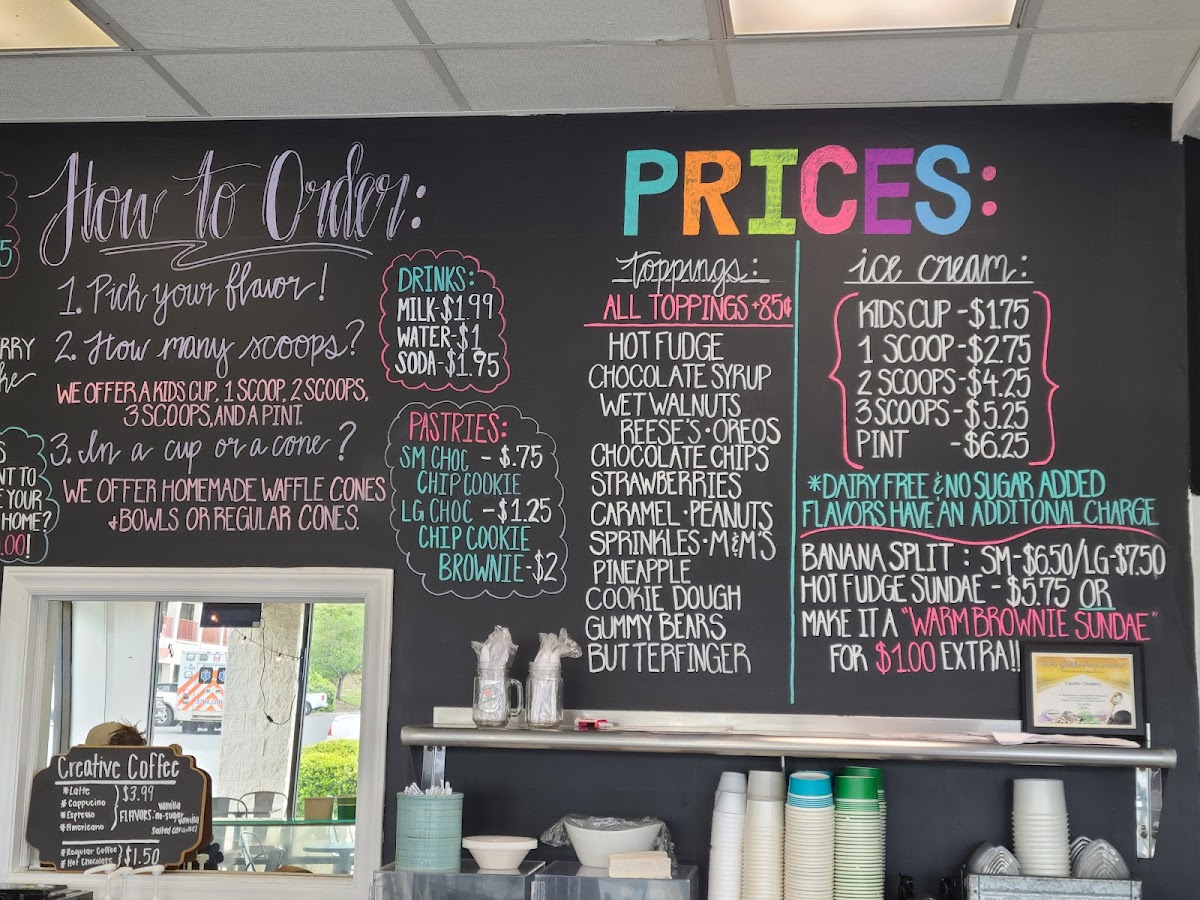 How to Order:
1. Pick your flavor!
2. How many scoops?
WE OFFER A KIDS CUP, 1 SCOOP, 2 SCOOPS,
3 SCOOPS, AND A PINT.
3. In a cup or a cone?
WE OFFER HOMEMADE WAFFLE CONES
& BOWLS OR REGULAR CONES.
5
RRY
S
NT TO
YOUR
HOME?
.00!
DRINKS:
MILK-$1.99
WATER-$1
SODA-$1.95
PASTRIES:
SM CHOC - $.75
CHIP COOKIE
LG CHOC - $1.25
CHIP COOKIE
BROWNIE-$2
PRICES:
toppings:
ALL TOPPINGS +85¢
HOT FUDGE
CHOCOLATE SYRUP
WET WALNUTS
REESE'S • OREOS
CHOCOLATE CHIPS
STRAWBERRIES
CARAMEL • PEANUTS
SPRINKLES • M&M'S
PINEAPPLE
COOKIE DOUGH
GUMMY BEARS
BUTTERFINGER
ice cream:
KIDS CUP - $1.75
1 SCOOP - $2.75
2 SCOOPS - $4.25
3 SCOOPS - $5.25
PINT - $6.25
*DAIRY FREE & NO SUGAR ADDED
FLAVORS HAVE AN ADDITIONAL CHARGE
BANANA SPLIT : SM-$6.50/LG-$7.50
HOT FUDGE SUNDAE - $5.75 OR
MAKE IT A "WARM BROWNIE SUNDAE"
FOR $1.00 EXTRA!!
Creative Coffee
*Latte
*Cappucino
*Espresso
*Americano
$3.99
FLAVORS: vanilla
no-sugar vanilla
salted caramel
*Regular Coffee
*Hot Chocolate
$1.50